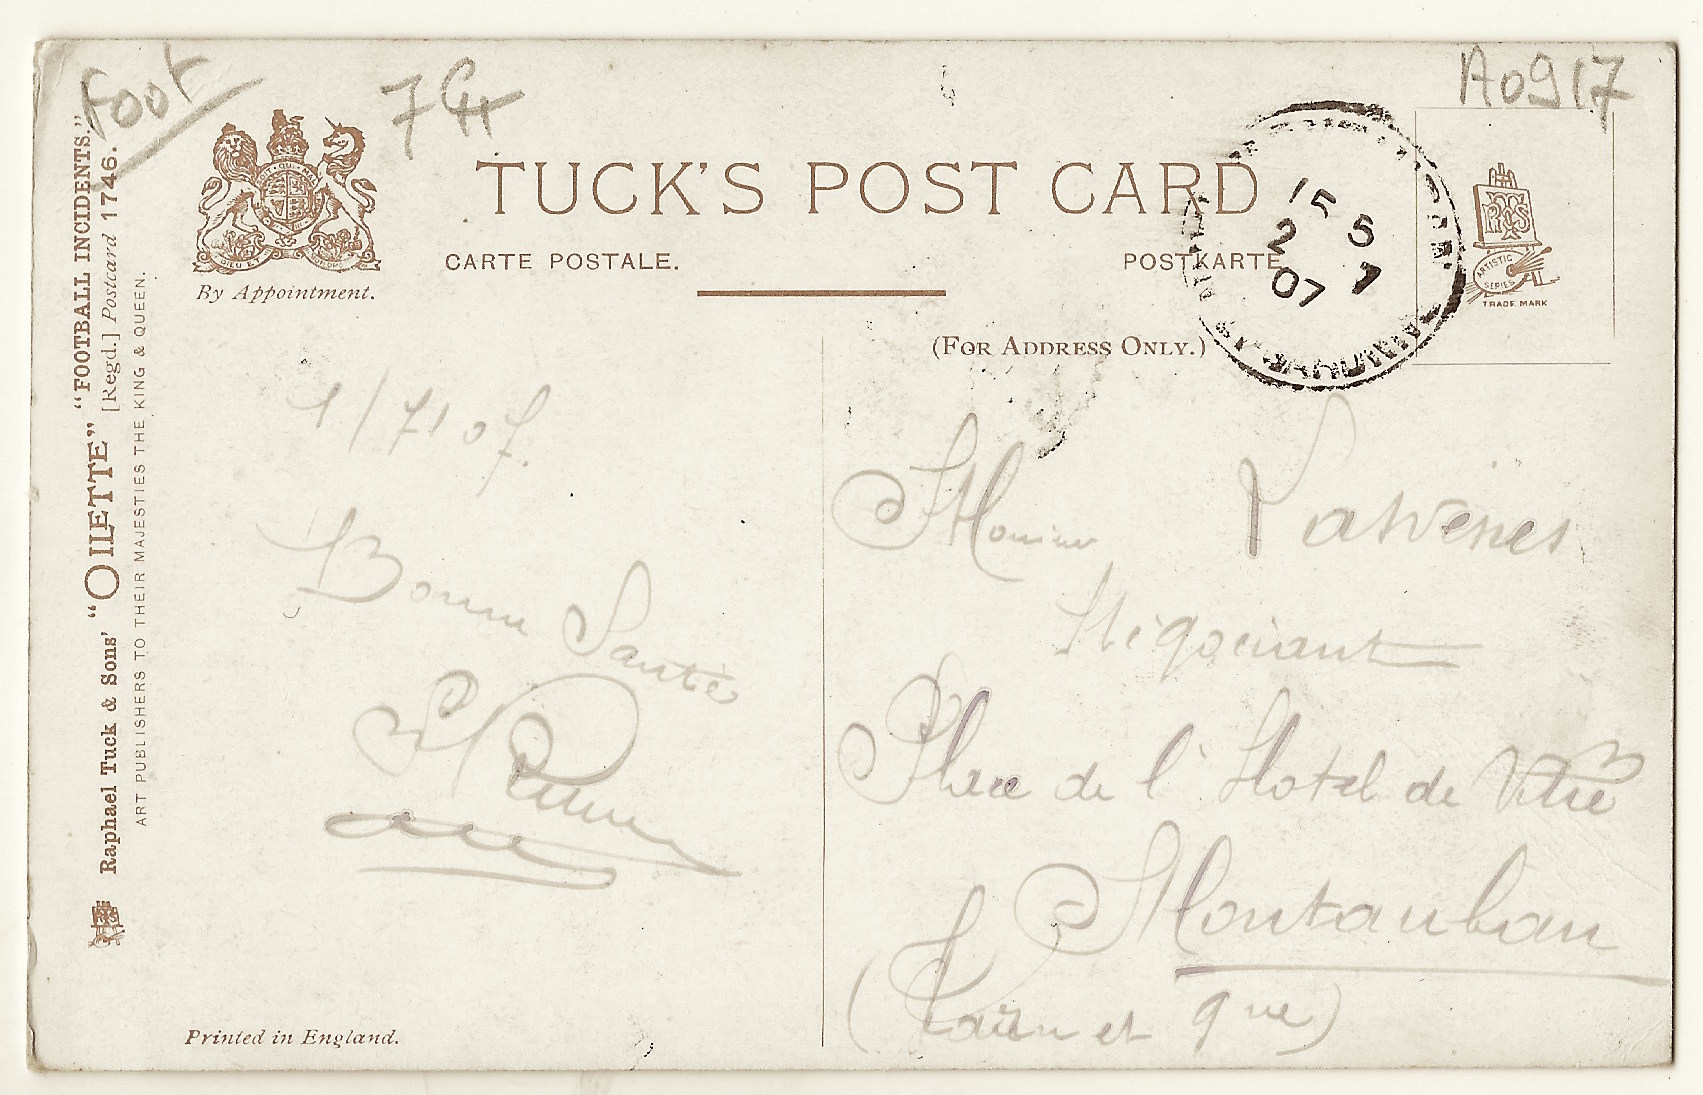 Foot
A0917
TUCK'S POST CARD
CARTE POSTALE.
POSTKARTE
By Appointment.
(FOR ADDRESS ONLY.)
15 5
2 7
07
ARTISTIC
SERIES
TRADE MARK
Raphael Tuck & Sons' "OILETTE" "FOOTBALL INCIDENTS."
[Regd.] Postcard 1746.
ART PUBLISHERS TO THEIR MAJESTIES THE KING & QUEEN.
1/7/07.
Bonne Santée
Monsieur
Négociant
Place de l'Hotel de Ville
Montauban
(Tarn et gne)
Printed in England.